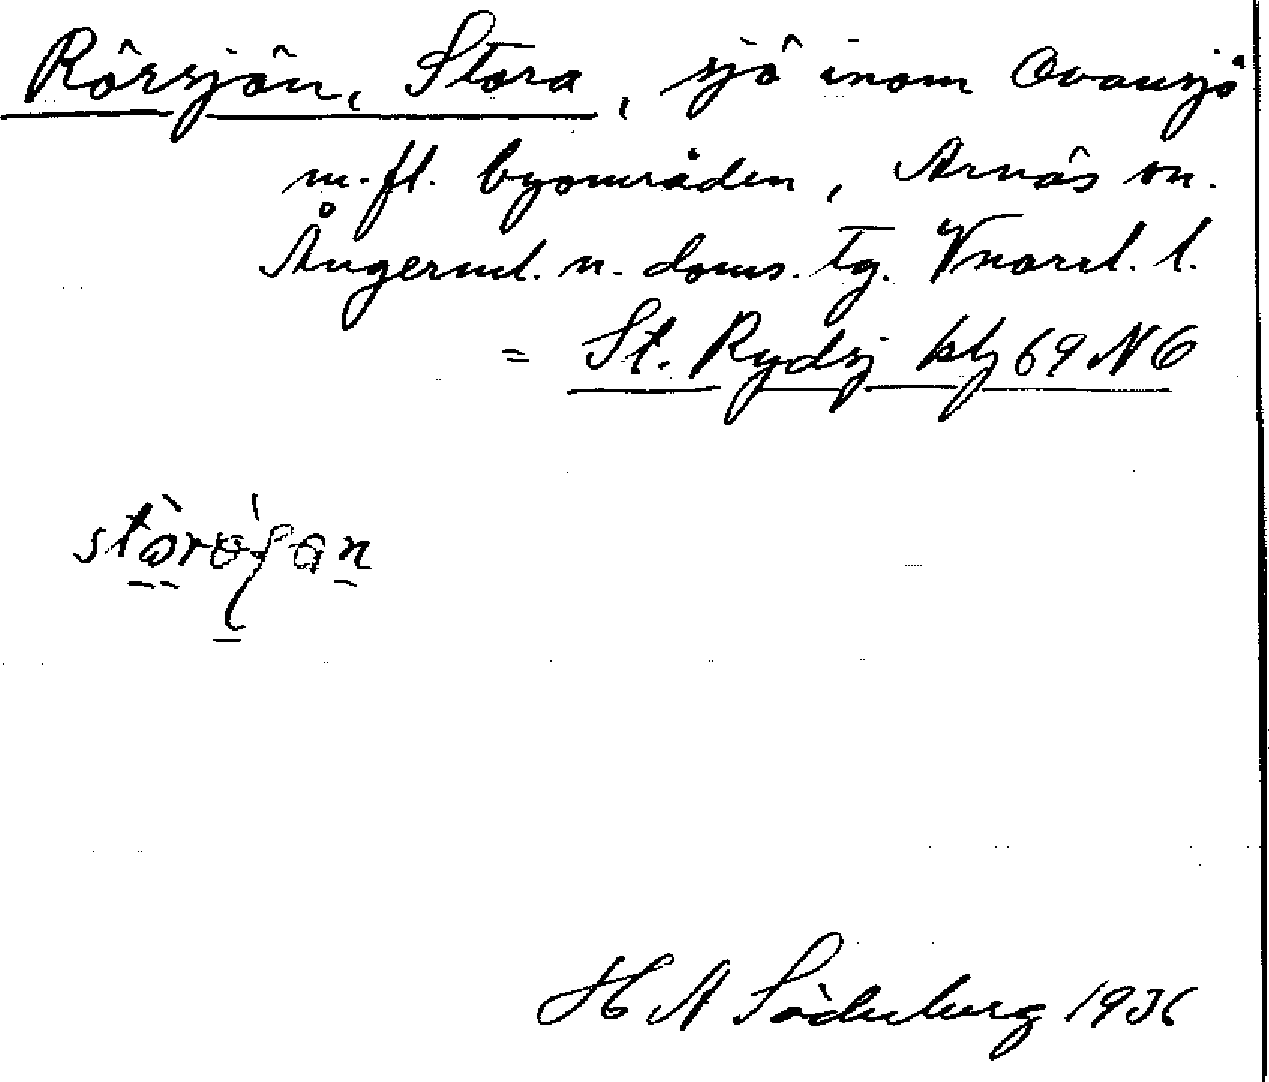 Rörsjön, Stora, sjö inom Ovansjö
m. fl. byområden, Arnäs sn.
Ångerml. n. doms. tg. Vnorrl. l.
= St. Rydsj kbl 69 NO
H A Söderberg 1936